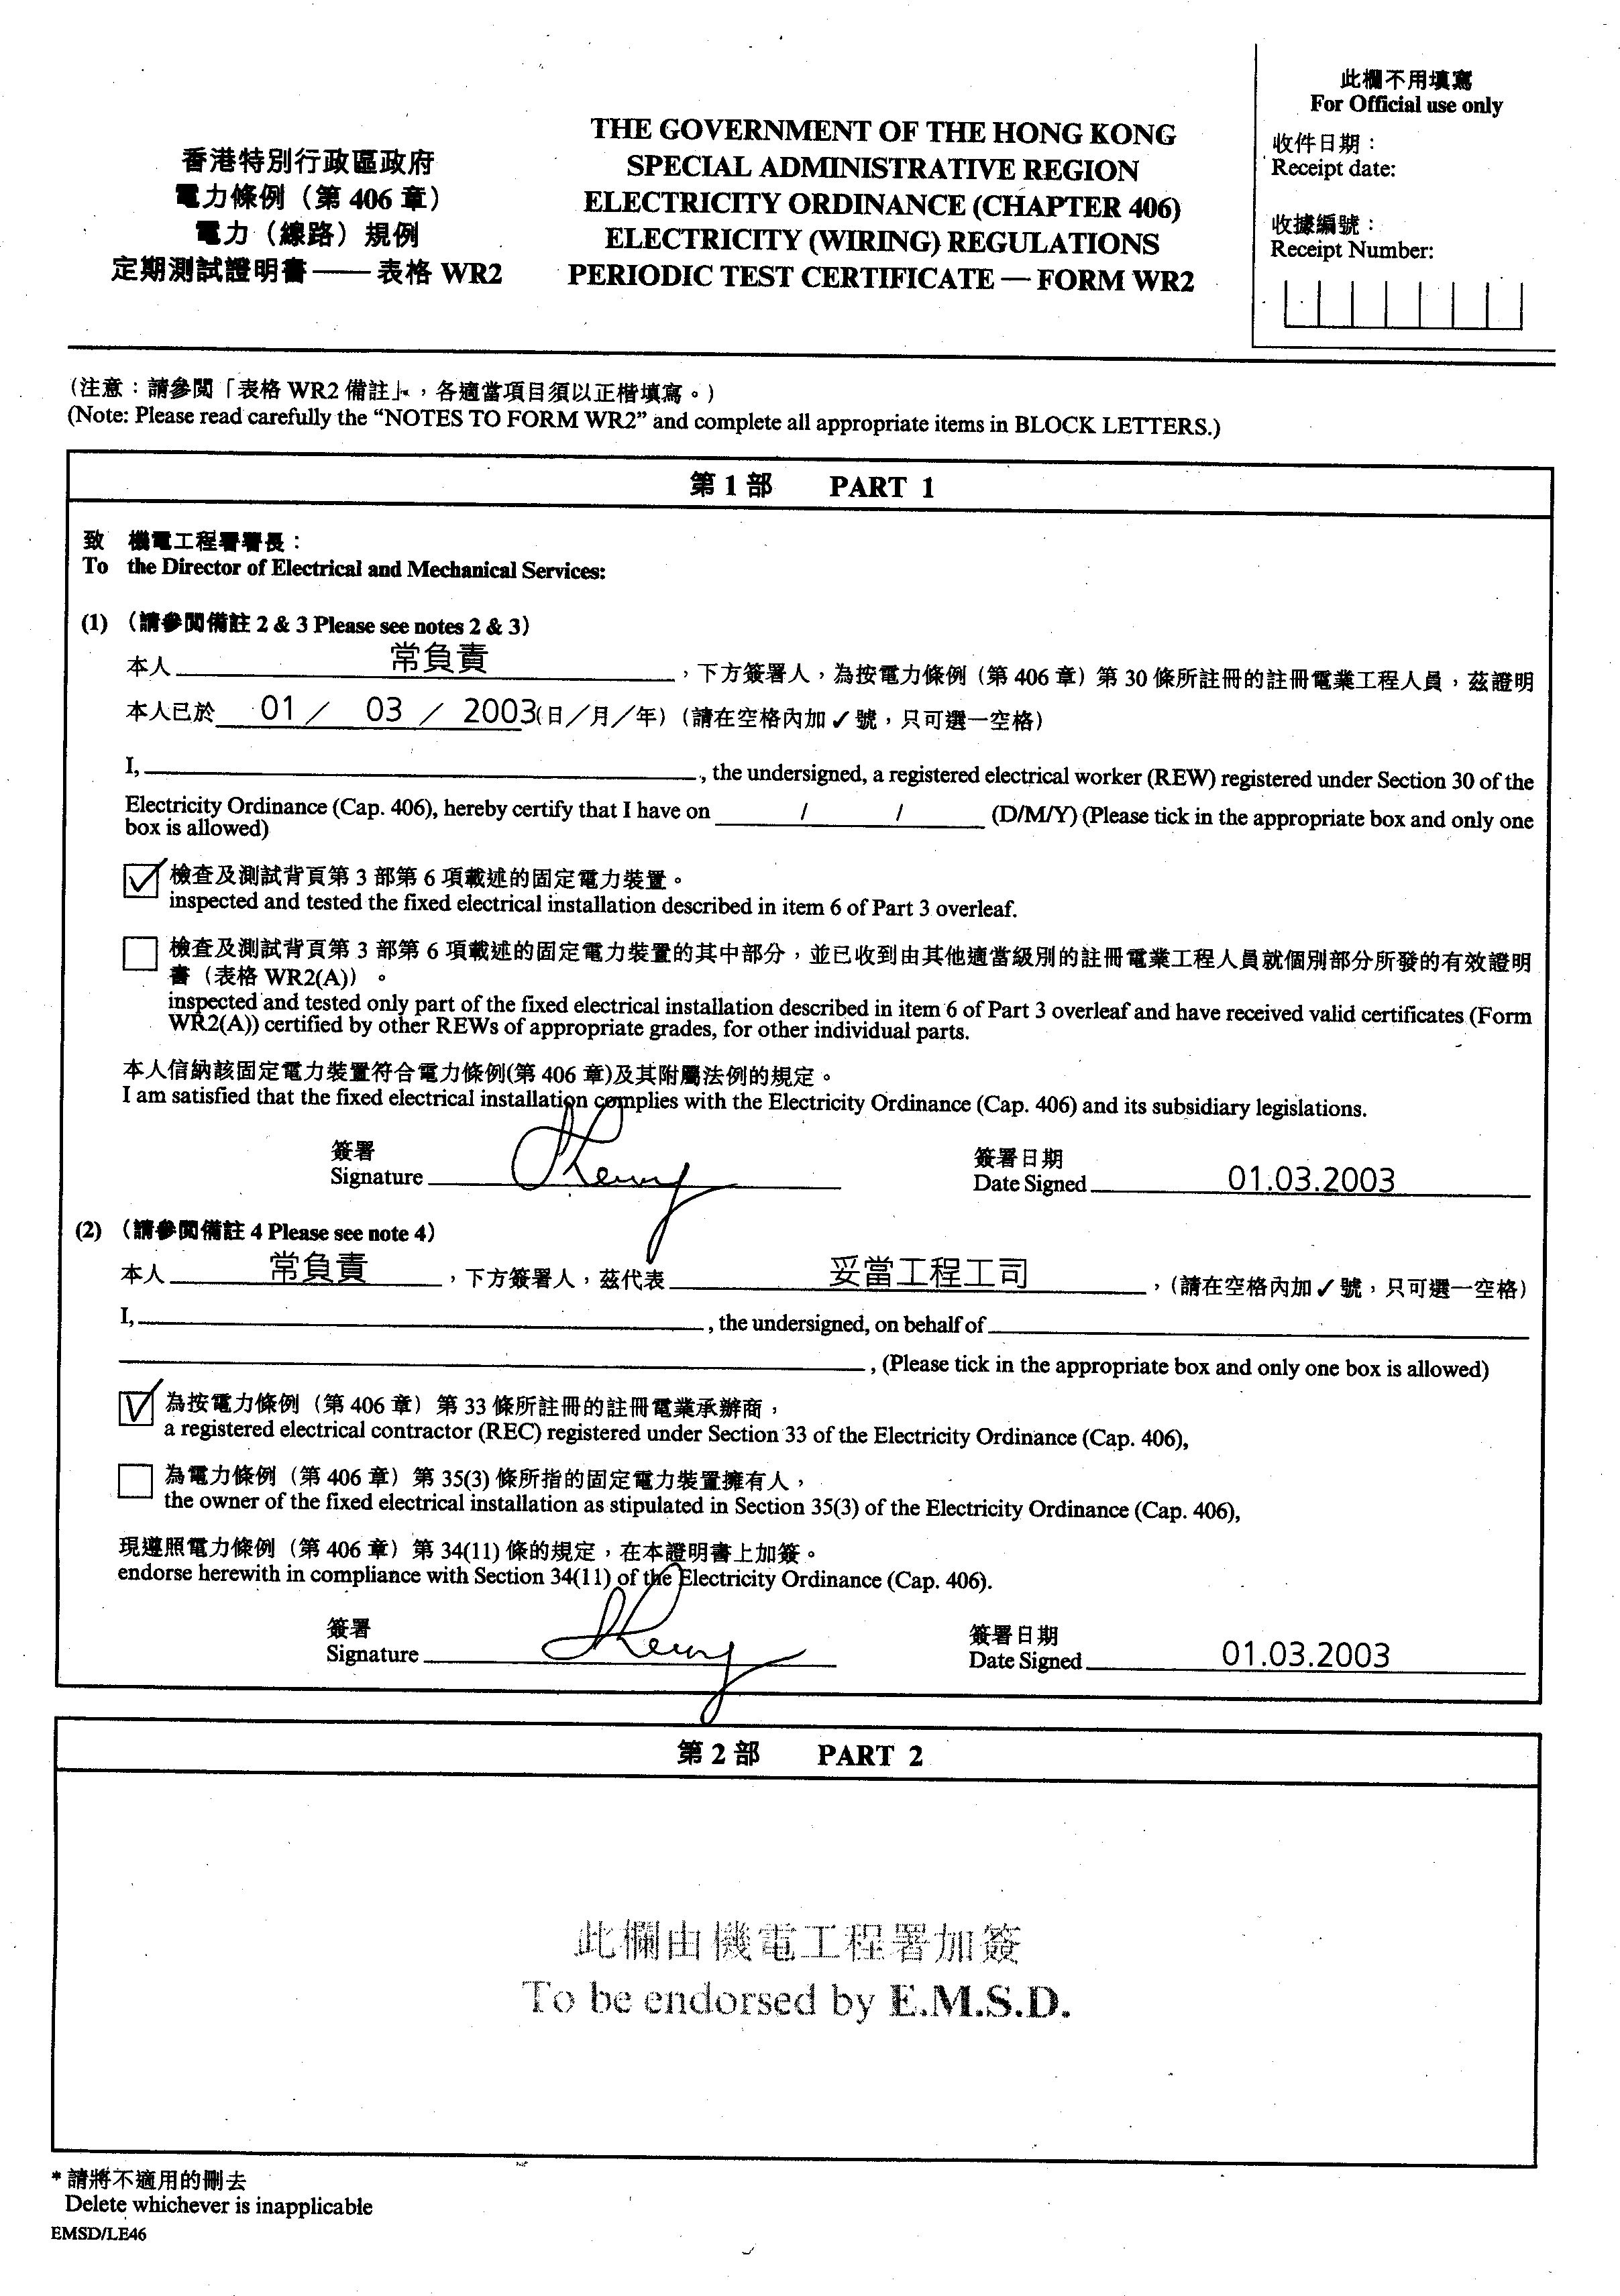 此欄不用填寫
For Official use only
收件日期：
Receipt date:
收據編號：
Receipt Number:
香港特別行政區政府
電力條例（第 406 章）
電力（線路）規例
定期測試證明書——表格 WR2
THE GOVERNMENT OF THE HONG KONG
SPECIAL ADMINISTRATIVE REGION
ELECTRICITY ORDINANCE (CHAPTER 406)
ELECTRICITY (WIRING) REGULATIONS
PERIODIC TEST CERTIFICATE — FORM WR2
（注意：請參閱「表格 WR2 備註」，各適當項目須以正楷填寫。）
(Note: Please read carefully the “NOTES TO FORM WR2” and complete all appropriate items in BLOCK LETTERS.)
第 1 部 PART 1
致 機電工程署署長：
To the Director of Electrical and Mechanical Services:
(1) （請參閱備註 2 & 3 Please see notes 2 & 3）
本人 常負責 ，下方簽署人，為按電力條例（第 406 章）第 30 條所註冊的註冊電業工程人員，茲證明
本人已於 01 / 03 / 2003 (日／月／年)（請在空格內加 ✓ 號，只可選一空格）
I, , the undersigned, a registered electrical worker (REW) registered under Section 30 of the
Electricity Ordinance (Cap. 406), hereby certify that I have on / / (D/M/Y) (Please tick in the appropriate box and only one
box is allowed)
✓ 檢查及測試背頁第 3 部第 6 項載述的固定電力裝置。
inspected and tested the fixed electrical installation described in item 6 of Part 3 overleaf.
檢查及測試背頁第 3 部第 6 項載述的固定電力裝置的其中部分，並已收到由其他適當級別的註冊電業工程人員就個別部分所發的有效證明
書（表格 WR2(A)）。
inspected and tested only part of the fixed electrical installation described in item 6 of Part 3 overleaf and have received valid certificates (Form
WR2(A)) certified by other REWs of appropriate grades, for other individual parts.
本人信納該固定電力裝置符合電力條例(第 406 章)及其附屬法例的規定。
I am satisfied that the fixed electrical installation complies with the Electricity Ordinance (Cap. 406) and its subsidiary legislations.
簽署
Signature
簽署日期
Date Signed 01.03.2003
(2) （請參閱備註 4 Please see note 4）
本人 常負責 ，下方簽署人，茲代表 妥當工程工司 ，（請在空格內加 ✓ 號，只可選一空格）
I, , the undersigned, on behalf of
, (Please tick in the appropriate box and only one box is allowed)
✓ 為按電力條例（第 406 章）第 33 條所註冊的註冊電業承辦商，
a registered electrical contractor (REC) registered under Section 33 of the Electricity Ordinance (Cap. 406),
為電力條例（第 406 章）第 35(3) 條所指的固定電力裝置擁有人，
the owner of the fixed electrical installation as stipulated in Section 35(3) of the Electricity Ordinance (Cap. 406),
現遵照電力條例（第 406 章）第 34(11) 條的規定，在本證明書上加簽。
endorse herewith in compliance with Section 34(11) of the Electricity Ordinance (Cap. 406).
簽署
Signature
簽署日期
Date Signed 01.03.2003
第 2 部 PART 2
此欄由機電工程署加簽
To be endorsed by E.M.S.D.
* 請將不適用的刪去
Delete whichever is inapplicable
EMSD/LE46